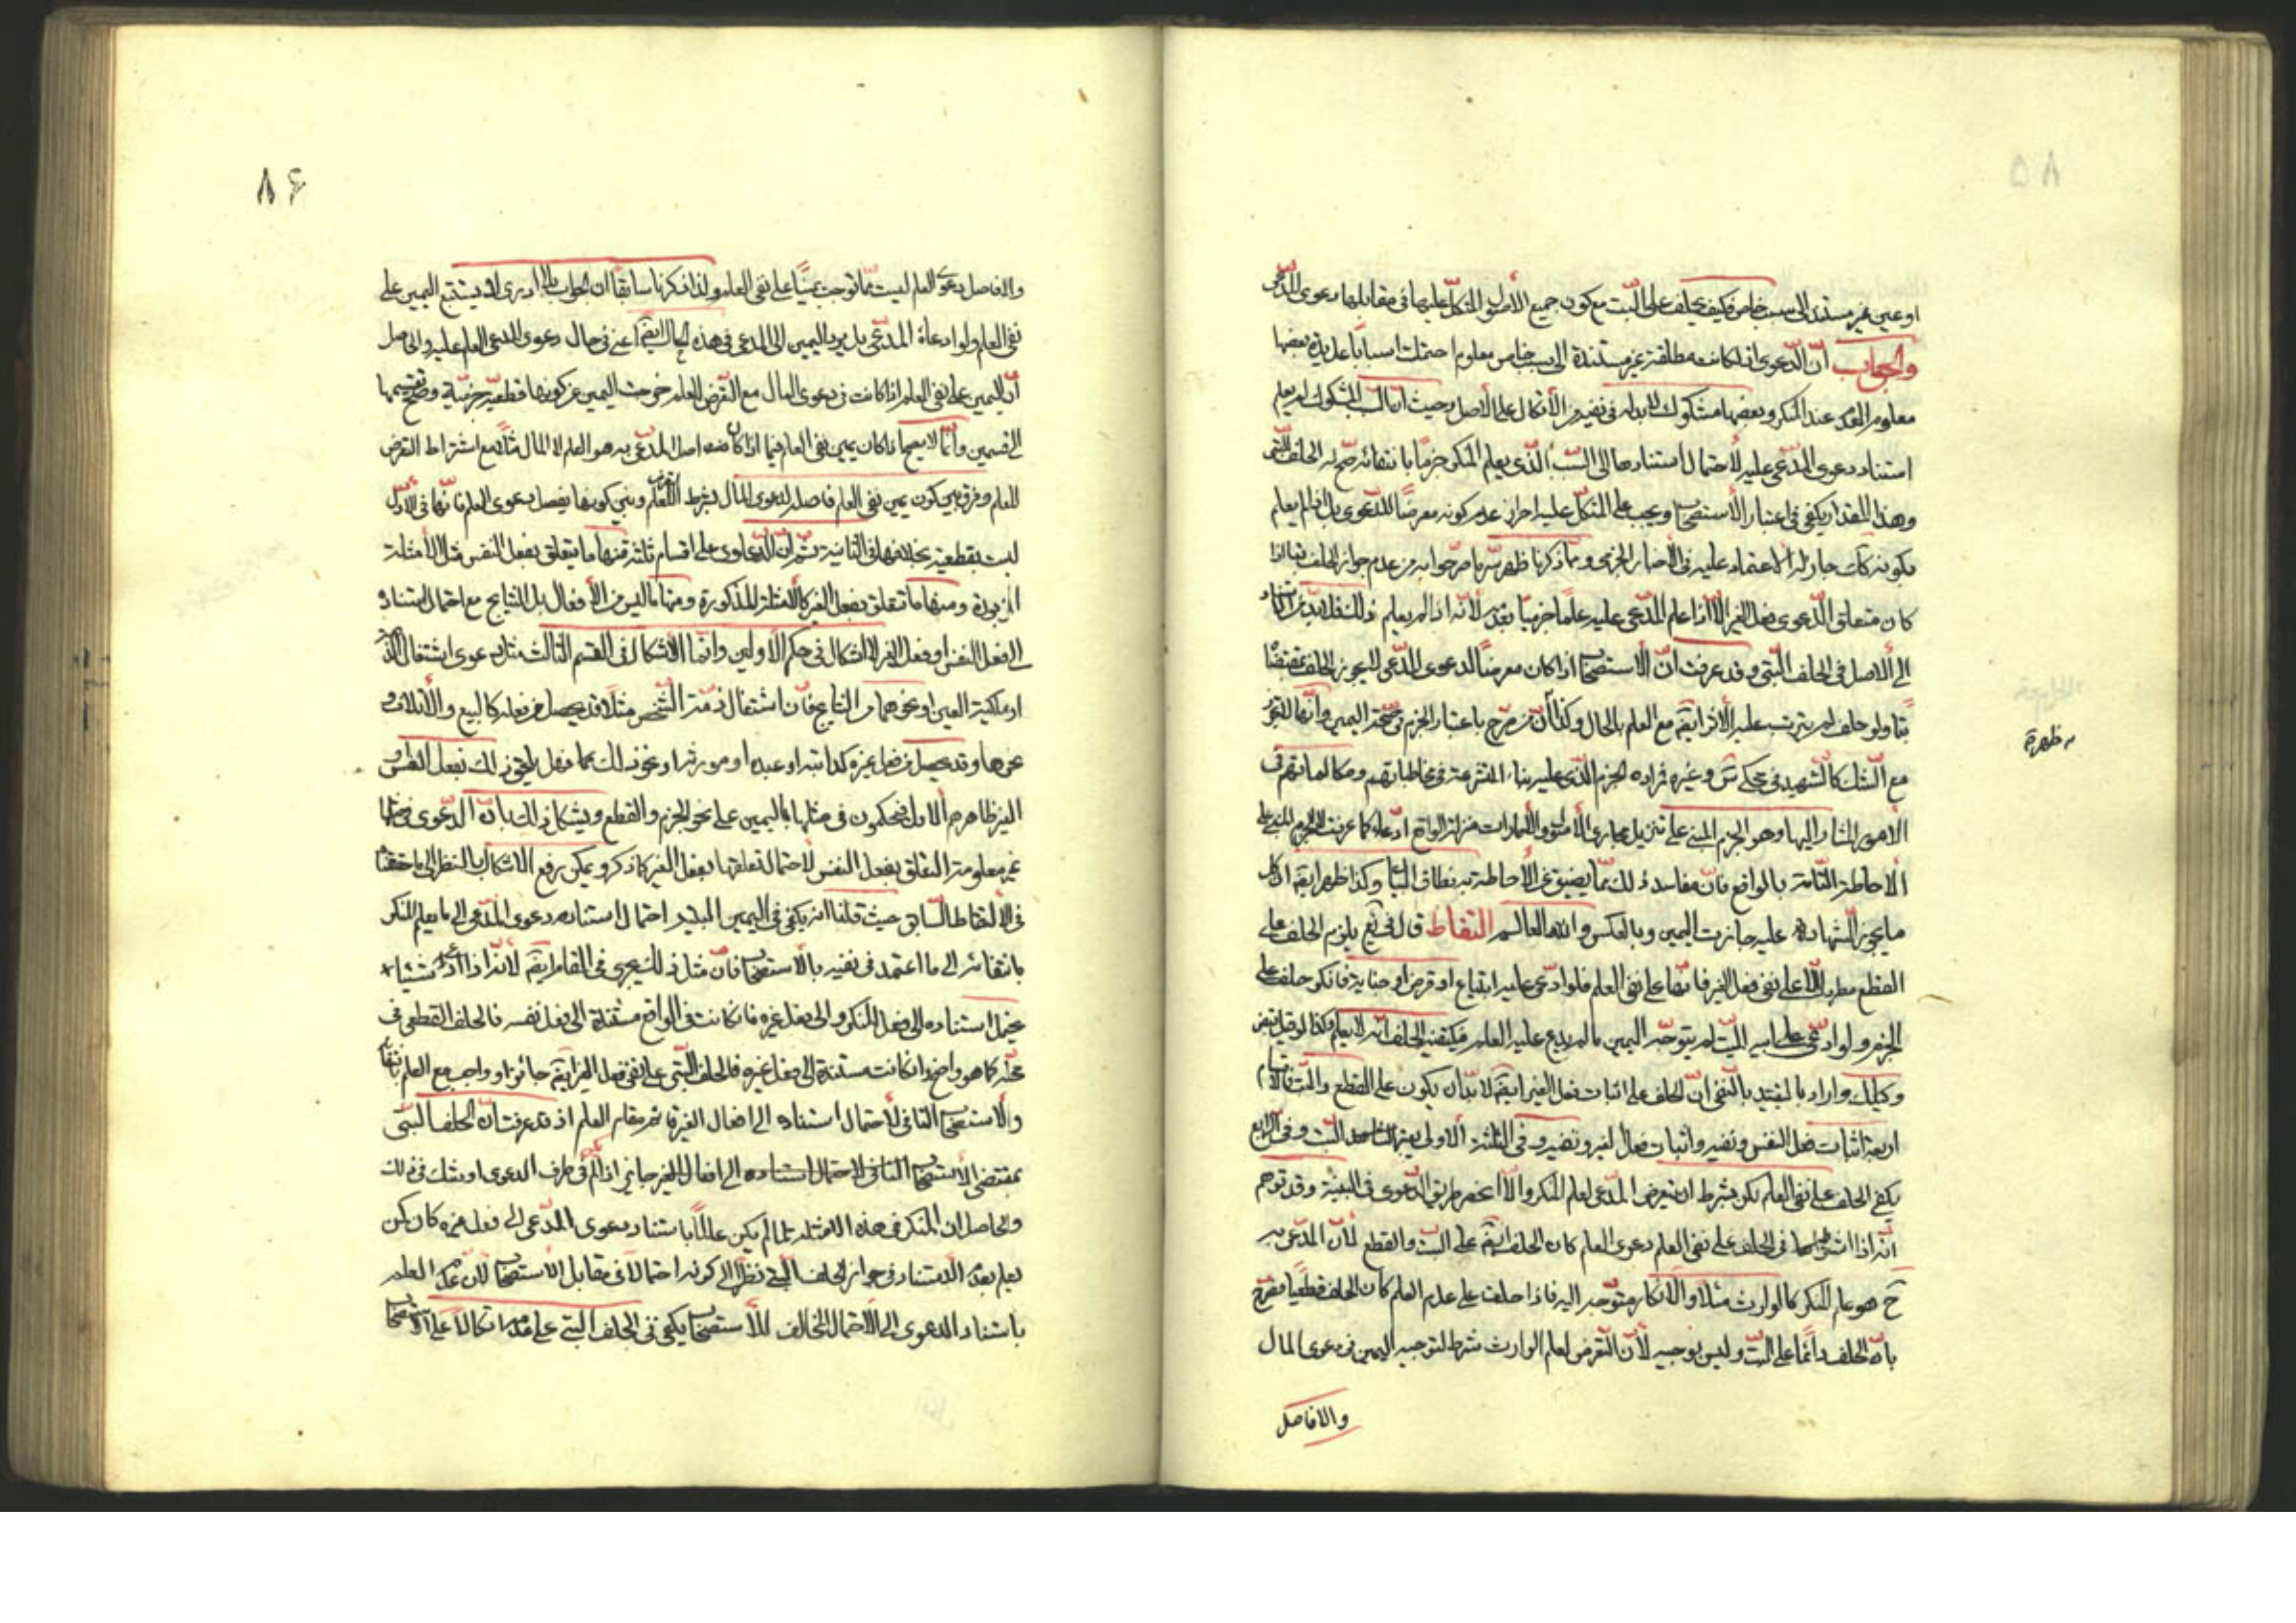 ٨٥
او عين غير مستند الى سبب خاص فكيف يحلف على البت مع كون جميع الأصول المتكل عليها في مقابلها دعوى المدعي
والجواب أن الدعوى اذا كانت مطلقة غير مستندة الى سبب خاص معلوم احتملت اسبابا عديدة بعضها
معلوم العدم عند المنكر وبعضها مشكوك لا بد له في نفيه من الأتكال على الأصل وحيث ان السبب المشكوك لم يعلم
استناد دعوى المدعي عليه لأحتمال استنادها الى السبب الذي يعلم المنكر جزما بانتفائه صح له الحلف البتي
وهذا المقدار يكفي في اعتبار الأستصحاب ويجب على المتكل عليه احراز عدم كونه معرضا للدعوى بل اذا لم يعلم
بكونه كك جاز له الاعتماد عليه في الأخبار الجزمي ومما ذكرنا ظهر سر ما صرحوا به من عدم جواز الحلف بتا اذا
كان متعلق الدعوى فعل الغير الا اذا علم المدعى عليه علما جزميا بعدمه لأنه اذا لم يعلم ذلك فلا بد من استناد
الى الاصل في الحلف البتي وقد عرفت أن الأستصحاب اذا كان معرضا لدعوى المدعي لا يجوز الحلف بمقتضاه
بتا ولو حلف لم يترتب عليه الأثر ايضا مع العلم بالحال وكذا أن من صرح باعتبار الجزم في صحة اليمين وأنها لا تجوز
مع الشك كالشهيد في محكي س وغيره فراده الجزم الذي عليه بناء المتشرعة في مخاطباتهم ومكالماتهم في
الامور المشار اليها وهو الجزم المبني على تنزيل مجاري الأصول والأمارات منزلة الواقع ادعاء كما عرفت لا الجزم المبني على
الأحاطة التامة بالواقع فان مفاسد ذلك مما يضيق عن الأحاطة به نطاق البيان وكذا ظهر ايضا ان كل
ما يجوز الشهادة عليه جازت اليمين وبالعكس والله العالم التقاط قال في يع يلزم الحلف على
القطع مطردا الا على نفي فعل الغير فانها على نفي العلم فلو ادعى عليه ابتياع او قرض او جناية فانكر حلف على
الجزم ولو ادعى على ابيه الميت لم يتوجه اليمين ما لم يدع عليه العلم فيكفيه الحلف انه لا يعلم وكذا لو قيل قبض
وكيلك واراد بالتقييد بالنفي ان الحلف على اثبات فعل الغير ايضا لا بد ان يكون على القطع والبت فالأقسام
اربعة اثبات فعل النفس ونفيه واثبات فعل الغير ونفيه وفي الثلثة الاولى يعتبر البت وفي الرابع
يكفي الحلف على نفي العلم لكن بشرط ان يتعرض المدعي لعلم المنكر والا انحصر طريق الدعوى في البينة وقد توهم
انه اذا اشترط في الحلف على نفي العلم دعوى العلم كان الحلف ايضا على البت والقطع لأن المدعى به
ح هو علم المنكر كالوارث مثلا والانكار متوجه اليه فاذا حلف على عدم العلم كان الحلف قطعيا فصح
بان الحلف دائما على البت وليس بوجيه لأن التعرض لعلم الوارث شرط لتوجيه اليمين في دعوى المال
والافاصل
ظهرة
٨۶
والافاصل دعوى العلم ليست مما توجب يمينا على نفي العلم ولذا ذكرنا سابقا ان الجواب بلا ادري لا يستتبع اليمين على
نفي العلم ولو ادعاه المدعي بل يرد اليمين الى المدعي في هذه الحال ايضا اعني في حال دعوى المدعي العلم عليه والحاصل
أن اليمين على نفي العلم اذا كانت في دعوى المال مع التعرض للعلم خرجت اليمين عن كونها قطعية جزمية وصح تقسيمها
الى قسمين وانما لا يصح اذا كان يمين نفي العلم فيما اذا كان اصل المدعى به هو العلم لا المال مثلا مع اشتراط التعرض
للعلم وفرق بين كون يمين نفي العلم فاصلة لدعوى المال بشرط التعرض للعلم وبين كونها يفصل دعوى العلم فانها في الأول
ليست بقطعية بخلافها في الثانية ثم ان الدعاوى على اقسام ثلثة منها ما يتعلق بفعل النفس مثل الأمثلة
المزبورة ومنها ما تتعلق بفعل الغير كالامثلة المذكورة ومنها ما ليس من الأفعال بل النتايج مع احتمال استناده
الى فعل النفس او فعل الغير لا اشكال في حكم الأولين وانما الاشكال في القسم الثالث مثل دعوى اشتغال الذمة
او ملكية العين او نحوهما من النتايج فان اشتغال ذمة الشخص مثلا قد يحصل من فعله كالبيع والأتلاف
ونحوها وقد يحصل من فعل غيره كدابته او عبده او مورثه او نحو ذلك مما فهل يلحق ذلك بفعل النفس او
الغير ظاهرهم الاول فيحكمون في مثلها باليمين على نحو الجزم والقطع ويشكل ذلك بان الدعوى في مثلها
غير معلومة التعلق بفعل النفس لاحتمال تعلقها بفعل الغير كما ذكر ويمكن رفع الاشكال بالنظر الى ما حققنا
في الالتقاط السابق حيث قلنا انه يكفي في اليمين البتية احتمال استناد دعوى المدعي الى ما يعلم المنكر
بانتفائه الى ما اعتمد في نفيه بالأستصحاب فان مثل ذلك يجري في المقام ايضا لانه اذا ادعى شيئا
يحتمل استناده الى فعل المنكر والى فعل غيره فان كانت في الواقع مستندة الى فعل نفسه فالحلف القطعي في
محله كما هو واضح وان كانت مستندة الى فعل غيره فالحلف البتي على نفي فعل الغير ايضا جائز او واجب مع العلم بانتفائه
والأستصحاب النافي لأحتمال استناده الى افعال الغير قائم مقام العلم اذ قد عرفت ان الحلف البتي
بمقتضى الأستصحاب النافي لاحتمال استناده الى افعال الغير جايز اذا لم في طرف الدعوى او يشك في ذلك
والحاصل ان المنكر في هذه الامثلة لما لم يكن عالما باستناد دعوى المدعي الى فعل غيره كان لمن
يعلم بعدم الاستناد في جواز الحلف البتي نظرا الى كونه احتمالا في مقابل الأستصحاب لأن عدم العلم
باستناد الدعوى الى الأحتمال المخالف للأستصحاب يكفي في الحلف البتي على عدمه اتكالا على الأستصحاب